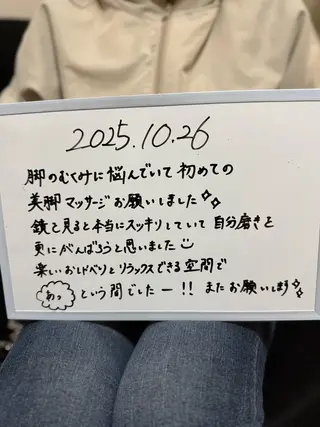 2025.10.26
脚のむくみに悩んでいて初めての
美脚マッサージお願いしました✧✧
鏡を見ると本当にスッキリしていて自分磨きを
更にがんばろうと思いました☺
楽しいおしゃべりとリラックスできる空間で
あっという間でしたー!! またお願いします✧✧